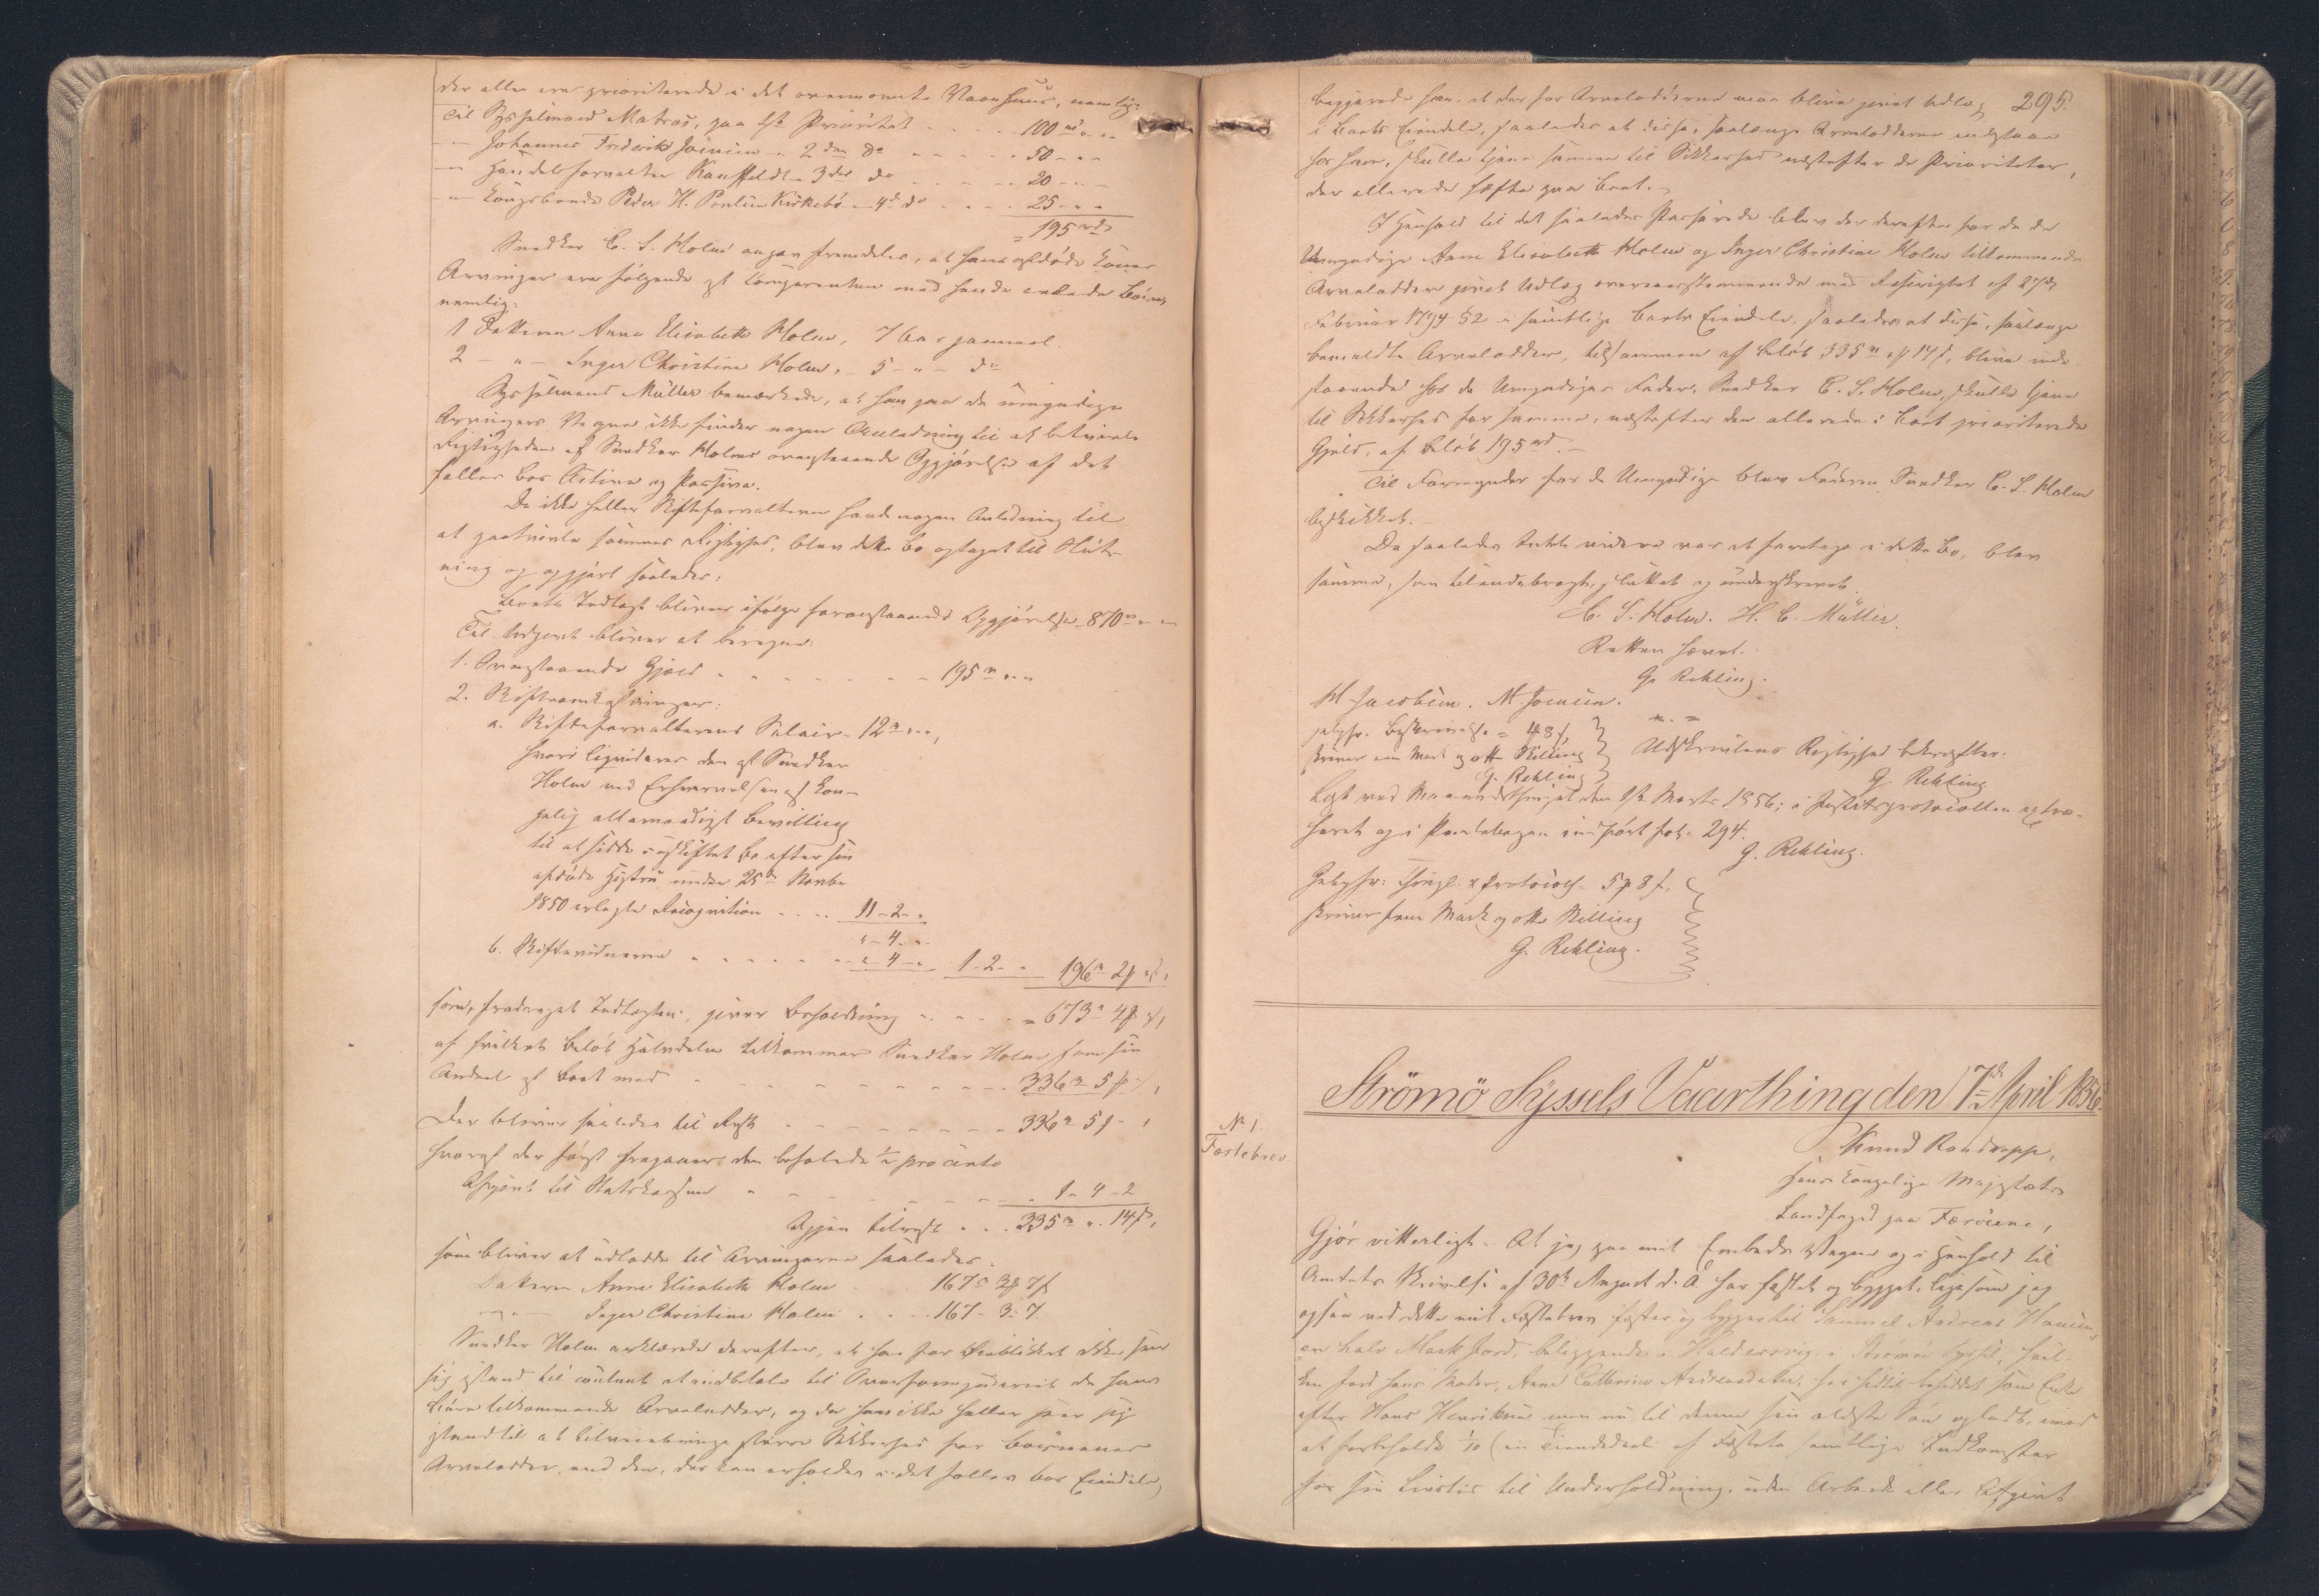 der alle ere prioriterede i det ovennævnte Vaanhuus, nemlig:
Til Sysselmand Matras, paa 1ste Prioritet 100 rd " "
– Johannes Frederik Joensen – 2den do 50 – " "
– Handelsforvalter Kauffeldt – 3die do 20 – " –
– Kongsbonde Peder H. Poulsen Kirkebö – 4de do 25 – " "
= 195 rd
Snedker C. S. Holm angav fremdeles, at hans afdöde Kones
Arvinger ere fölgende af Comparenten med hende avlede Börn,
nemlig:
1 Datteren Anne Elisabeth Holm, 7 Aar gammel.
2 – " – Inger Christine Holm, – 5 – " – do
Sysselmand Müller bemærkede, at han paa de umyndige
Arvingers Vegne ikke finder nogen Anledning til at betvivle
Rigtigheden af Snedker Holms ovenstaaende Opgjörelse af det
fælles Boes Activa og Passiva.
Da ikke heller Skifteforvalteren fandt nogen Anledning til
at paatvivle sammes Rigtighed, blev dette Bo optaget til Slut-
ning og opgjört saaledes:
Boets Indtægt bliver ifölge foranstaaende Opgjörelse 870 rd " "
Til Udgivt bliver at beregne:
1. Ovenstaaende Gjæld 195 rd " "
2. Skifteomkostninger:
a. Skifteforvalterens Salair – 12 rd " ",
hvori liqviderer den af Snedker
Holm ved Erhvervelsen af Kon-
gelig allernaadigst Bevilling
til at sidde i uskiftet Bo efter sin
afdöde Hustru under 25de Novbr
1850 erlagte Recognition 11 – 2 – "
" – 4 – "
b. Skiftevidnerne " – 4 – " 1 – 2 – " 196 rd 2 ß " ,
som, fradraget Indtægten, giver Beholdning = 673 rd 4 ß " ,
af hvilket Belöb Halvdelen tilkommer Snedker Holm som sin
Andeel af Boet med 336 rd 5 ß " ,
Der bliver saaledes til Rest 336 rd 5 ß – ,
hvoraf der först fragaaer den befalede ½ pro cento
Afgivt til Statskassen 1 – 4 – 2
Igjen tilrest 335 rd " 14 ß,
som bliver at udlodde til Arvingerne saaledes
Datteren Anne Elisabeth Holm 167 rd 3 ß 7 ß
– " – Inger Christine Holm 167 – 3 – 7.
Snedker Holm erklærede derefter, at han for Öieblikket ikke saae
sig istand til contant at indbetale til Overformynderiet de hans
Börn tilkommende Arvelodder, og da han ikke heller saae sig
istand til at tilveiebringe större Sikkerhed for Börnenes
Arvelodder, end den, der kan erholdes i det fælles Bos Eiendele,
295.
begjærede han, at der for Arveloddernes maa blive givet Udlæg
i Boets Eiendele, saaledes at disse, saalænge Arvelodderne indestaae
hos ham, skulle tjene samme til Sikkerhed næstefter de Prioriteter,
der allerede hæfte paa Boet. –
I Henhold til det saaledes Passerede blev der derefter for de
Umyndige Anne Elisabeth Holm og Inger Christine Holm tilkommende
Arvelodder givet Udlæg overeensstemmende med Rescriptet af 27de
Februar 1794 § 2 i samtlige Boets Eiendele, saaledes at disse, saalænge
bemeldte Arvelodder, tilsammen af Belöb 335 rd " ß 14 ß, blive inde-
staaende hos de Umyndiges Fader, Snedker C. S. Holm, skulle tjene
til Sikkerhed for samme, næstefter den allerede i Boet prioriterede
Gjæld, af Belöb 195 rd. –
Til Formynder for de Umyndige blev Faderen Snedker C. S. Holm
beskikket. –
Da saaledes Intet videre var at foretage i dette Bo, blev
samme, som tilendebragt, sluttet og underskrevet.
C. S. Holm. H. C. Müller.
Retten hævet.
G. Rehling.
M. Jacobsen. M. Joensen.
Beskrivelse = 48 ß
skriver een Mark og otte Skilling
G. Rehling
Udskrivtens Rigtighed bekræfter.
G. Rehling
Læst ved Maanedsthinget den 1ste Marts 1856; i Justitsprotocollen extra-
heret og i Pantebogen indfört fol. 294.
G. Rehling.
Gebyhr: Thingl. & Protocoll. 5 ß 8 ß,
skriver fem Mark og otte Skilling
G. Rehling.
Strömö Syssels Vaarthing den 7de April 1856.
No 1.
Fæstebrev.
Knud Rondropp,
Hans Kongelige Majestæts
Landfoged paa Færöerne,
Gjör vitterligt: At jeg paa mit Embeds Vegne og i Henhold til
Amtets Skrivelse af 30te August d. A. har fæstet og bygget, ligesom jeg
ogsaa ved dette mit Fæstebrev fæster og bygger til Samuel Andreas Hansen
en halv Mark Jord, beliggende i Haldersvig i Strömö Syssel, hvil-
ken Jord hans Moder, Anne Cathrine Andreasdatter, har hidtil besiddet som Enke
efter Hans Henriksen men nu til denne sin ældste Sön opladt, imod
at forbeholde 1/10 (en Tiendedeel) af Fæstets samtlige Indkomster
for sin Livstid til Underholdning, uden Arbeide eller Afgivt